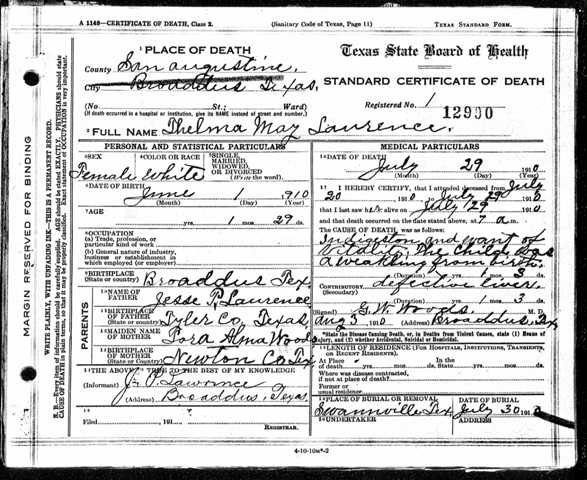 A 1148—CERTIFICATE OF DEATH, Class 2. (Sanitary Code of Texas, Page 11) TEXAS STANDARD FORM.
1 PLACE OF DEATH
County San Augustine.
City Broaddus Texas,
(No. St.; Ward)
(If death occurred in a hospital or institution, give its NAME instead of street and number.)
Texas State Board of Health
STANDARD CERTIFICATE OF DEATH
Registered No. 1
12990
2 FULL NAME Thelma May Laurence.
PERSONAL AND STATISTICAL PARTICULARS
3 SEX
Female
4 COLOR OR RACE
White
5 SINGLE, MARRIED, WIDOWED, OR DIVORCED
(Write the word).
6 DATE OF BIRTH
June 1 1910
(Month) (Day) (Year)
7 AGE
yrs. 1 mos. 29 ds.
8 OCCUPATION
(a) Trade, profession, or
particular kind of work
(b) General nature of industry,
business or establishment in
which employed (or employer)
9 BIRTHPLACE
(State or country) Broaddus Tex
PARENTS
10 NAME OF
FATHER Jesse P. Laurence
11 BIRTHPLACE
OF FATHER
(State or Country) Tyler Co Texas,
12 MAIDEN NAME
OF MOTHER Alma Woods
13 BIRTHPLACE
OF MOTHER
(State or Country) Newton Co Tex
14 THE ABOVE IS TRUE TO THE BEST OF MY KNOWLEDGE
(Informant) J. P. Lawrence
(Address) Broaddus, Texas.
15
Filed , 191
REGISTRAR.
MEDICAL PARTICULARS
16 DATE OF DEATH
July 29 1910
(Month) (Day) (Year)
17 I HEREBY CERTIFY, that I attended deceased from July
20 1910 to July 29 1910
that I last saw h alive on July 29 1910
and that death occurred on the date stated above, at 7 a m.
The CAUSE OF DEATH was as follows:
and want of
vitality the child was
a weakling from birth.
(Duration) yrs. 1 mos. 3 ds.
CONTRIBUTORY defective liver.
(Secondary)
(Duration) yrs. 1 mos. 3 ds.
(Signed) G. W. Woods M. D.
Aug 3, 1910 (Address) Broaddus, Tex
*State the Disease Causing Death, or, in Deaths from Violent Causes, state (1) Means of
Injury, and (2) whether Accidental, Suicidal or Homicidal.
18 LENGTH OF RESIDENCE (For Hospitals, Institutions, Transients,
or Recent Residents).
At Place
of death yrs. mos. ds. State yrs. mos. ds.
Where was disease contracted,
if not at place of death?
Former or
usual residence
19 PLACE OF BURIAL OR REMOVAL
Swannville Tex,
DATE OF BURIAL
July 30 1910
20 UNDERTAKER
ADDRESS
4-10-10m-2
MARGIN RESERVED FOR BINDING
WRITE PLAINLY, WITH UNFADING INK—THIS IS A PERMANENT RECORD.
N. B.—Every item of information should be carefully supplied. AGE should be stated EXACTLY. PHYSICIANS should state
CAUSE OF DEATH in plain terms, so that it may be properly classified. Exact statement of OCCUPATION is very important.